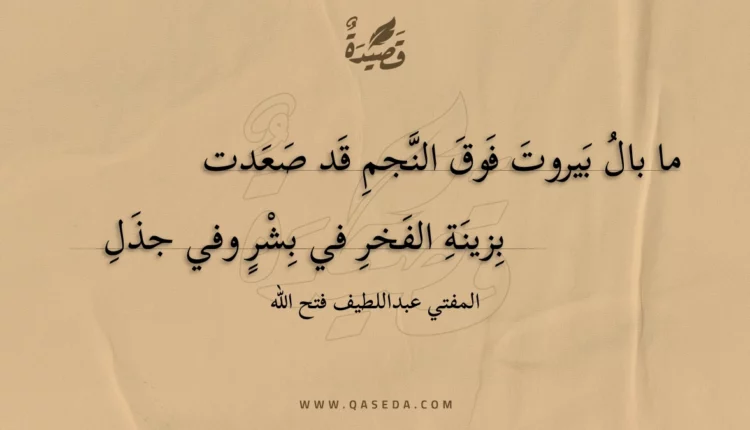 قَصِيْدَةٌ
ما بالُ بَيروتَ فَوقَ النَّجمِ قَد صَعَدت
بِزينَةِ الفَخرِ في بِشْرٍ وفي جذَلِ
المفتي عبداللطيف فتح الله
WWW.QASEDA.COM